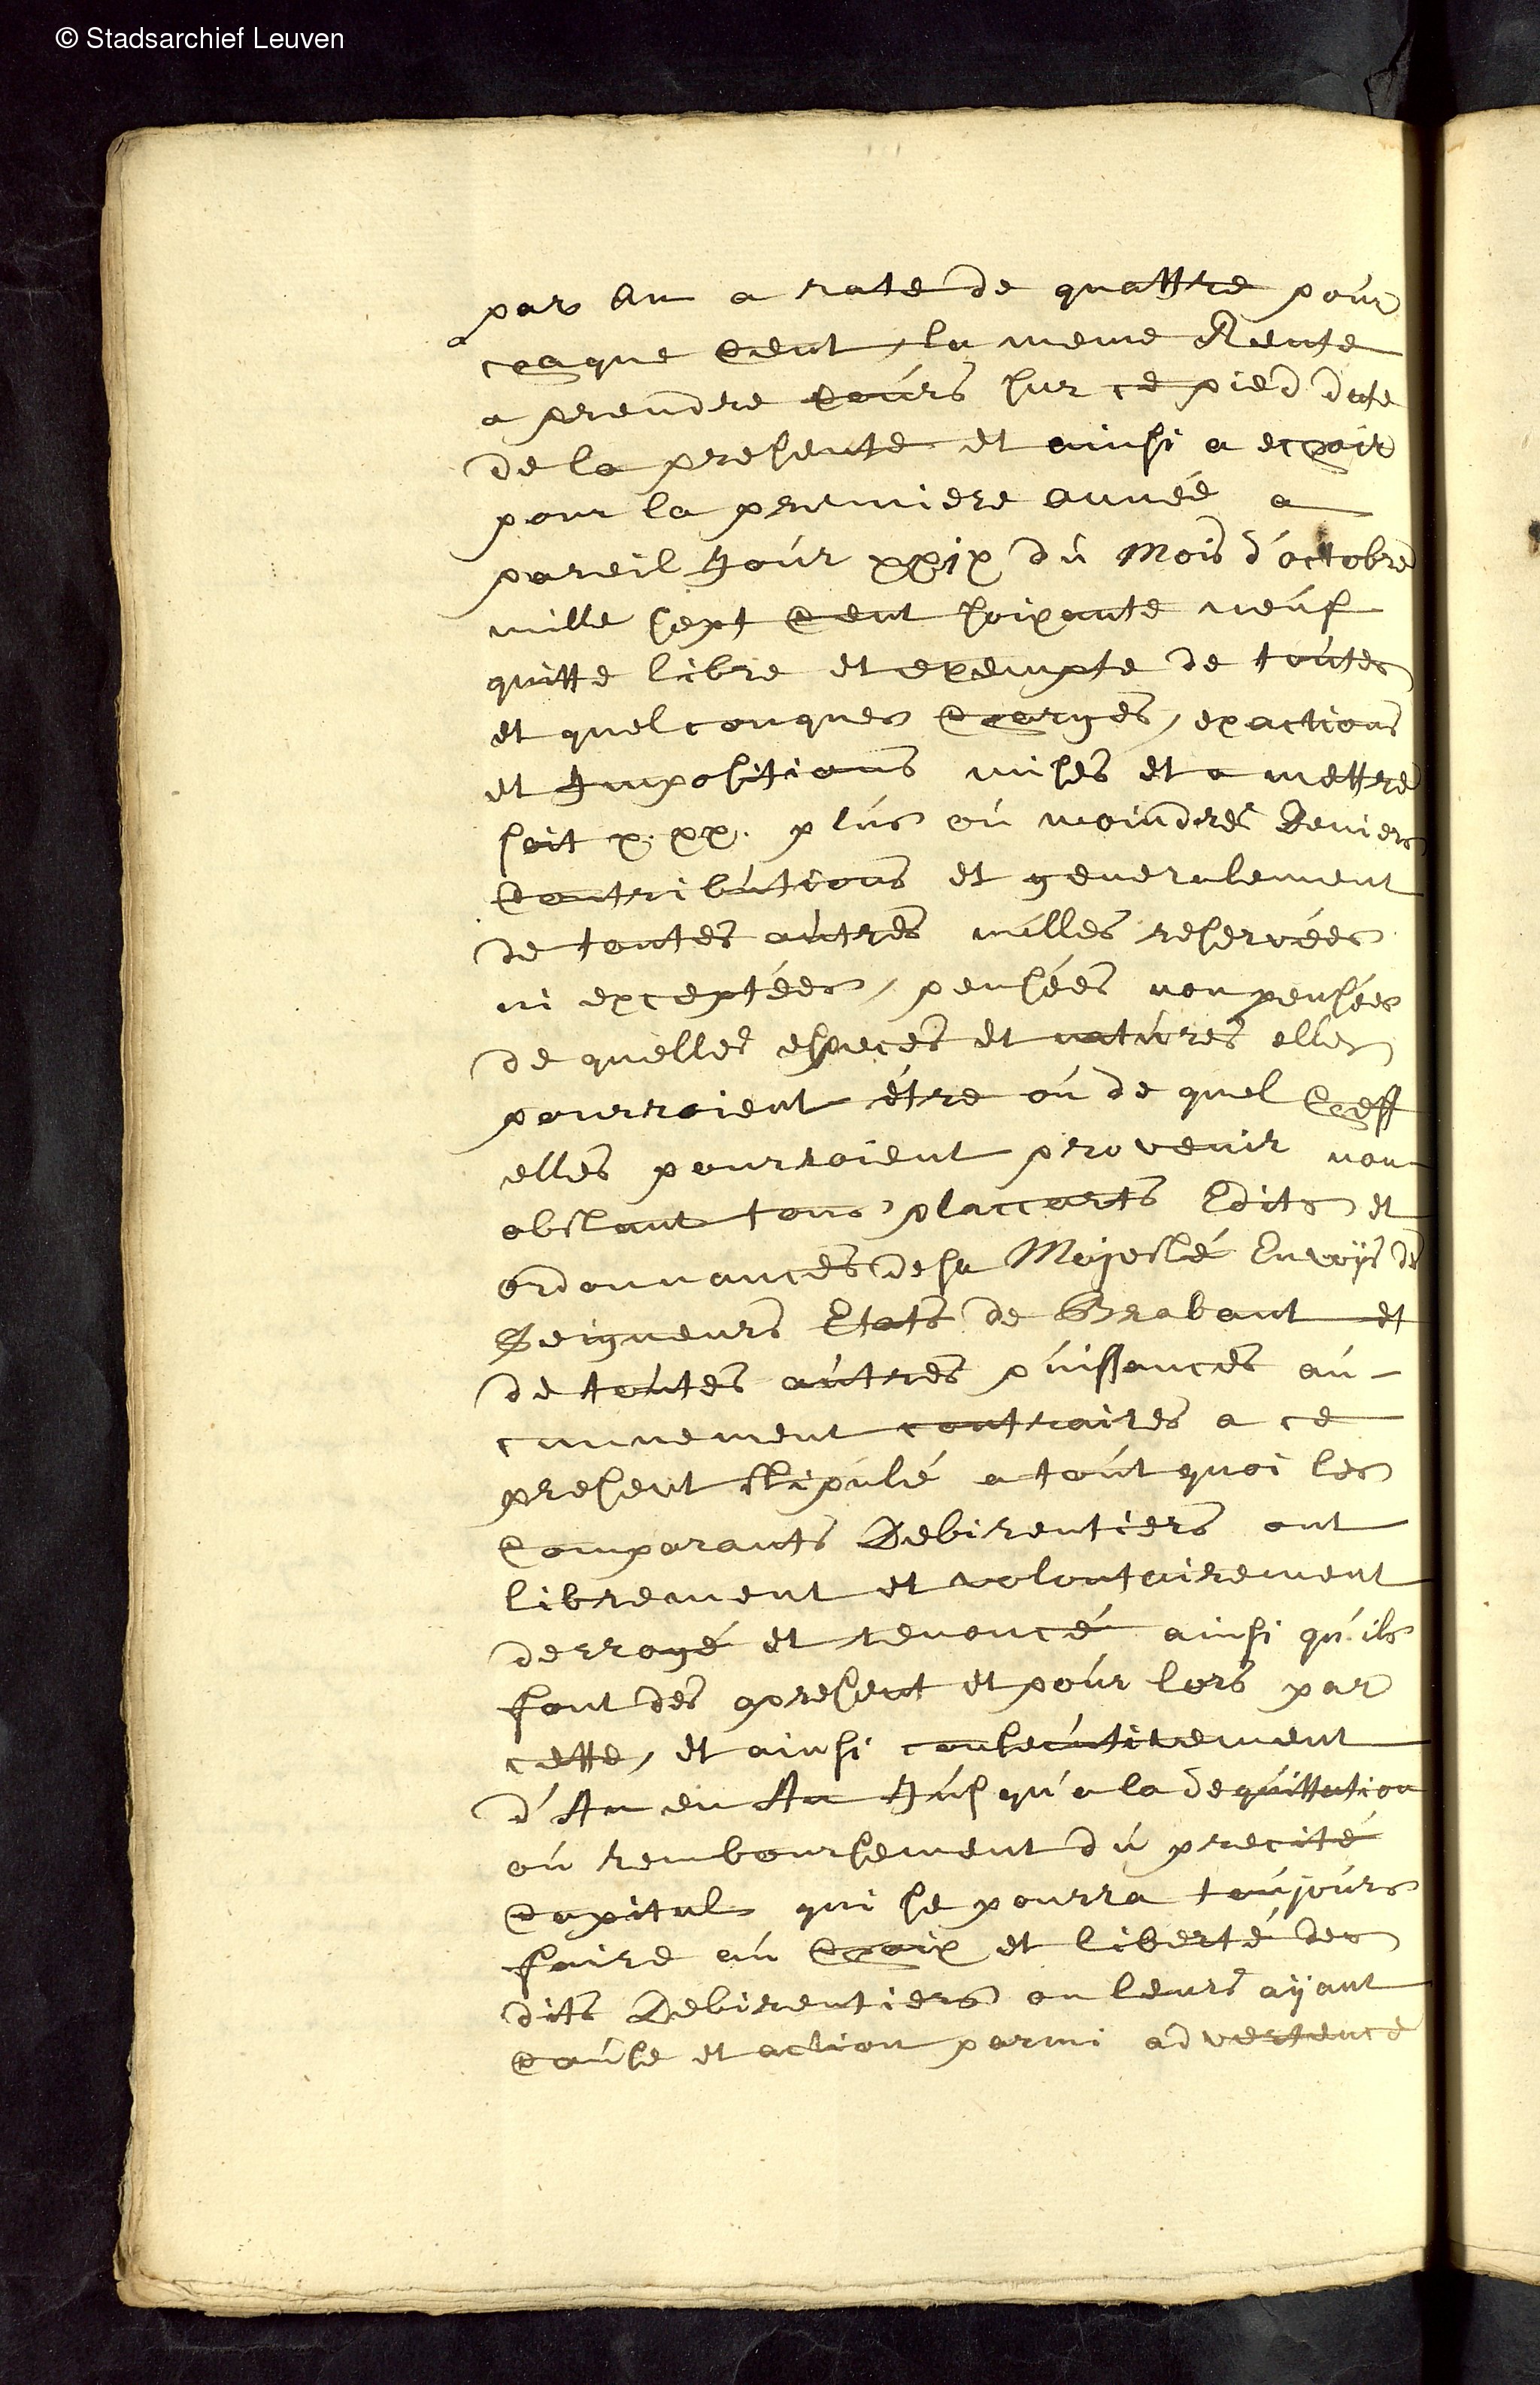 © Stadsarchief Leuven
par An a rate de quattre pour
chaque Cent, la meme Rente
a prendre cours sur ce pied date
de la presente et ainsi a echoir
pour la premiere année a
pareil Jour xxix du Mois d'octobre
mille sept Cent soixante neuf
quitte libre et exempte de toutes
et quelconques Charges, exactions
et Impositions mises et a mettre
soit x. xx. plus ou moindres Deniers
Contributions et generalement
de toutes autres nulles reservées
ni exceptées, pensées non pensées
de quelles especes et natures elles
pourroient être ou de quel Cheff
elles pourroient provenir non
obstant tous placcarts Edits et
ordonnances de sa Majesté Envoÿs de
Seigneurs Etats de Brabant et
de toutes autres puissances au-
cunnement contraires a ce
present stipulé a tout quoi les
Comparants Debirentiers ont
librement et volontairement
derrogé et renoncé ainsi qu'ils
font des apresent et pour lors par
cette, et ainsi consecutivement
d'An en An Jusqu'a la dequittation
ou remboursement du precité
Capital qui se pourra toujours
faire au Choix et liberté des
dits Debirentiers ou leurs aÿant
Cause et action parmi advertence